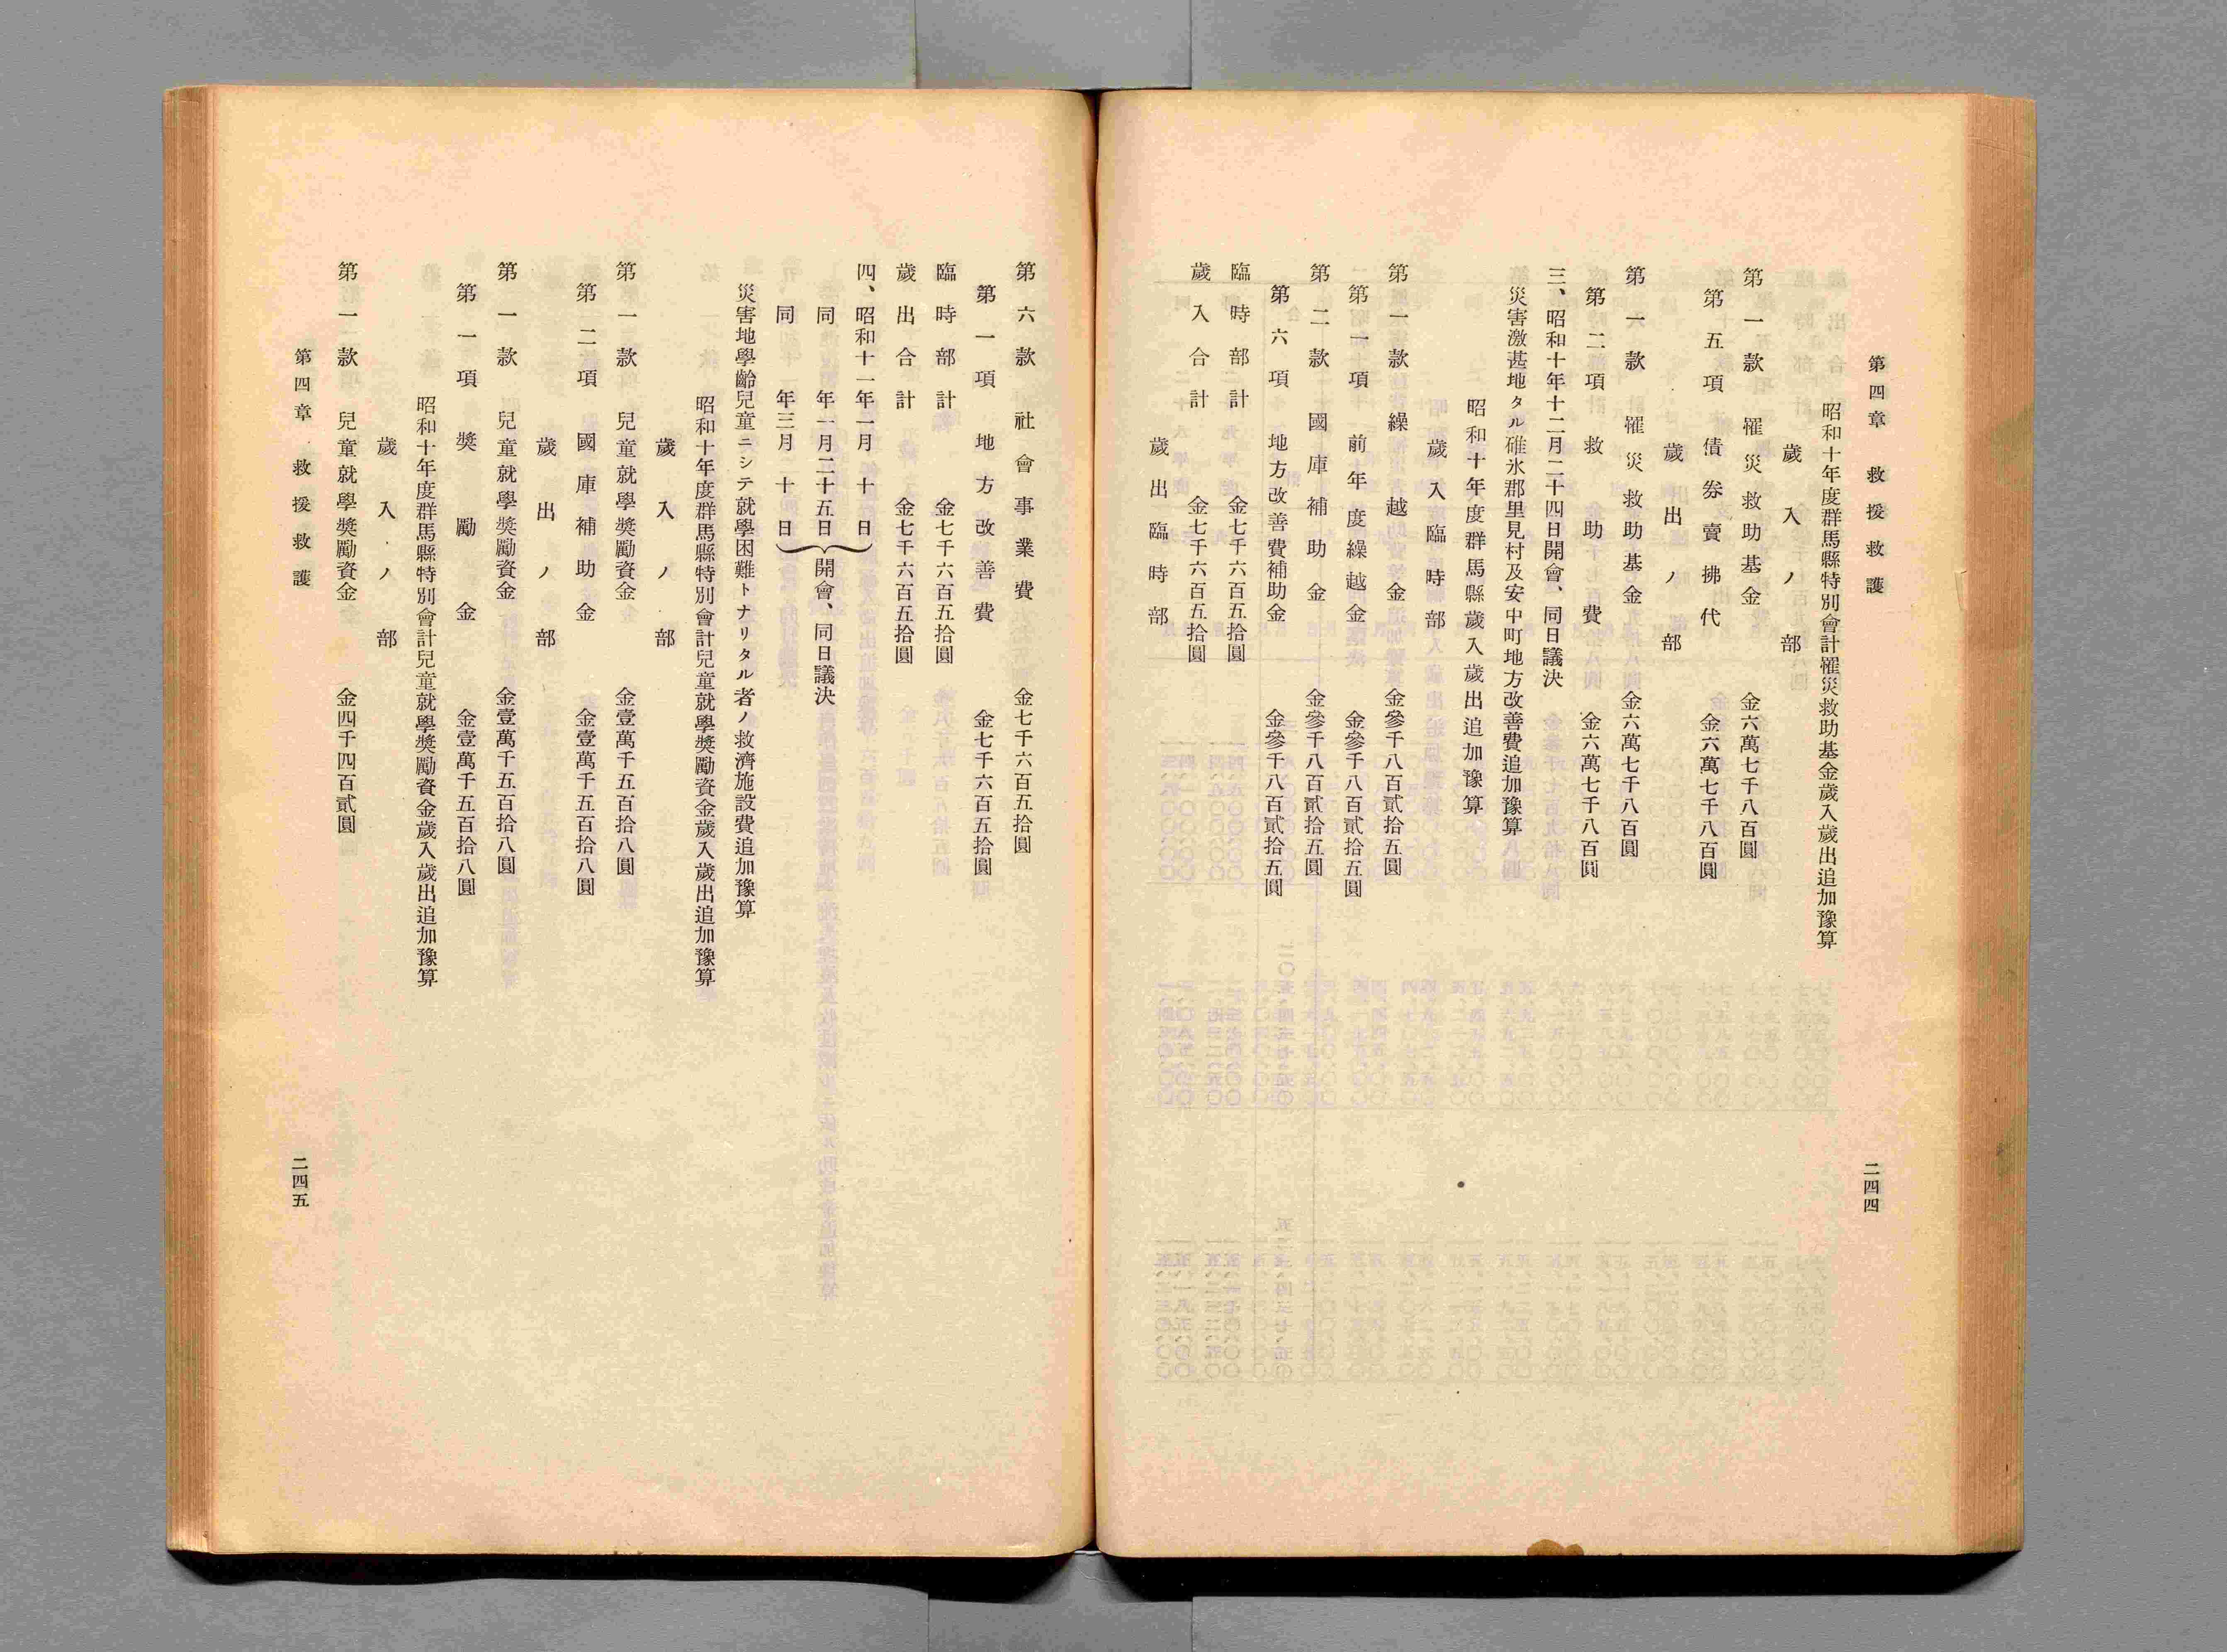 第四章　救援救護
二四四
昭和十年度群馬縣特別會計罹災救助基金歲入歲出追加豫算
歲入ノ部
第一款　罹災救助基金　金六萬七千八百圓
第五項　債券賣拂代　金六萬七千八百圓
歲出ノ部
第一款　罹災救助基金　金六萬七千八百圓
第二項　救助費　金六萬七千八百圓
三、昭和十年十二月二十四日開會、同日議決
災害激甚地タル碓氷郡里見村及安中町地方改善費追加豫算
昭和十年度群馬縣歲入歲出追加豫算
歲入臨時部
第一款　繰越金　金參千八百貳拾五圓
第一項　前年度繰越金　金參千八百貳拾五圓
第二款　國庫補助金　金參千八百貳拾五圓
第六項　地方改善費補助金　金參千八百貳拾五圓
臨時部計　金七千六百五拾圓
歲入合計　金七千六百五拾圓
歲出臨時部
第六款　社會事業費　金七千六百五拾圓
第一項　地方改善費　金七千六百五拾圓
臨時部計　金七千六百五拾圓
歲出合計　金七千六百五拾圓
四、昭和十一年一月十日
同　年一月二十五日
同　年三月二十日
開會、同日議決
災害地學齡兒童ニシテ就學困難トナリタル者ノ救濟施設費追加豫算
昭和十年度群馬縣特別會計兒童就學獎勵資金歲入歲出追加豫算
歲入ノ部
第一款　兒童就學獎勵資金　金壹萬千五百拾八圓
第二項　國庫補助金　金壹萬千五百拾八圓
歲出ノ部
第一款　兒童就學獎勵資金　金壹萬千五百拾八圓
第一項　獎勵金　金壹萬千五百拾八圓
昭和十年度群馬縣特別會計兒童就學獎勵資金歲入歲出追加豫算
歲入ノ部
第一款　兒童就學獎勵資金　金四千四百貳圓
第四章　救援救護
二四五